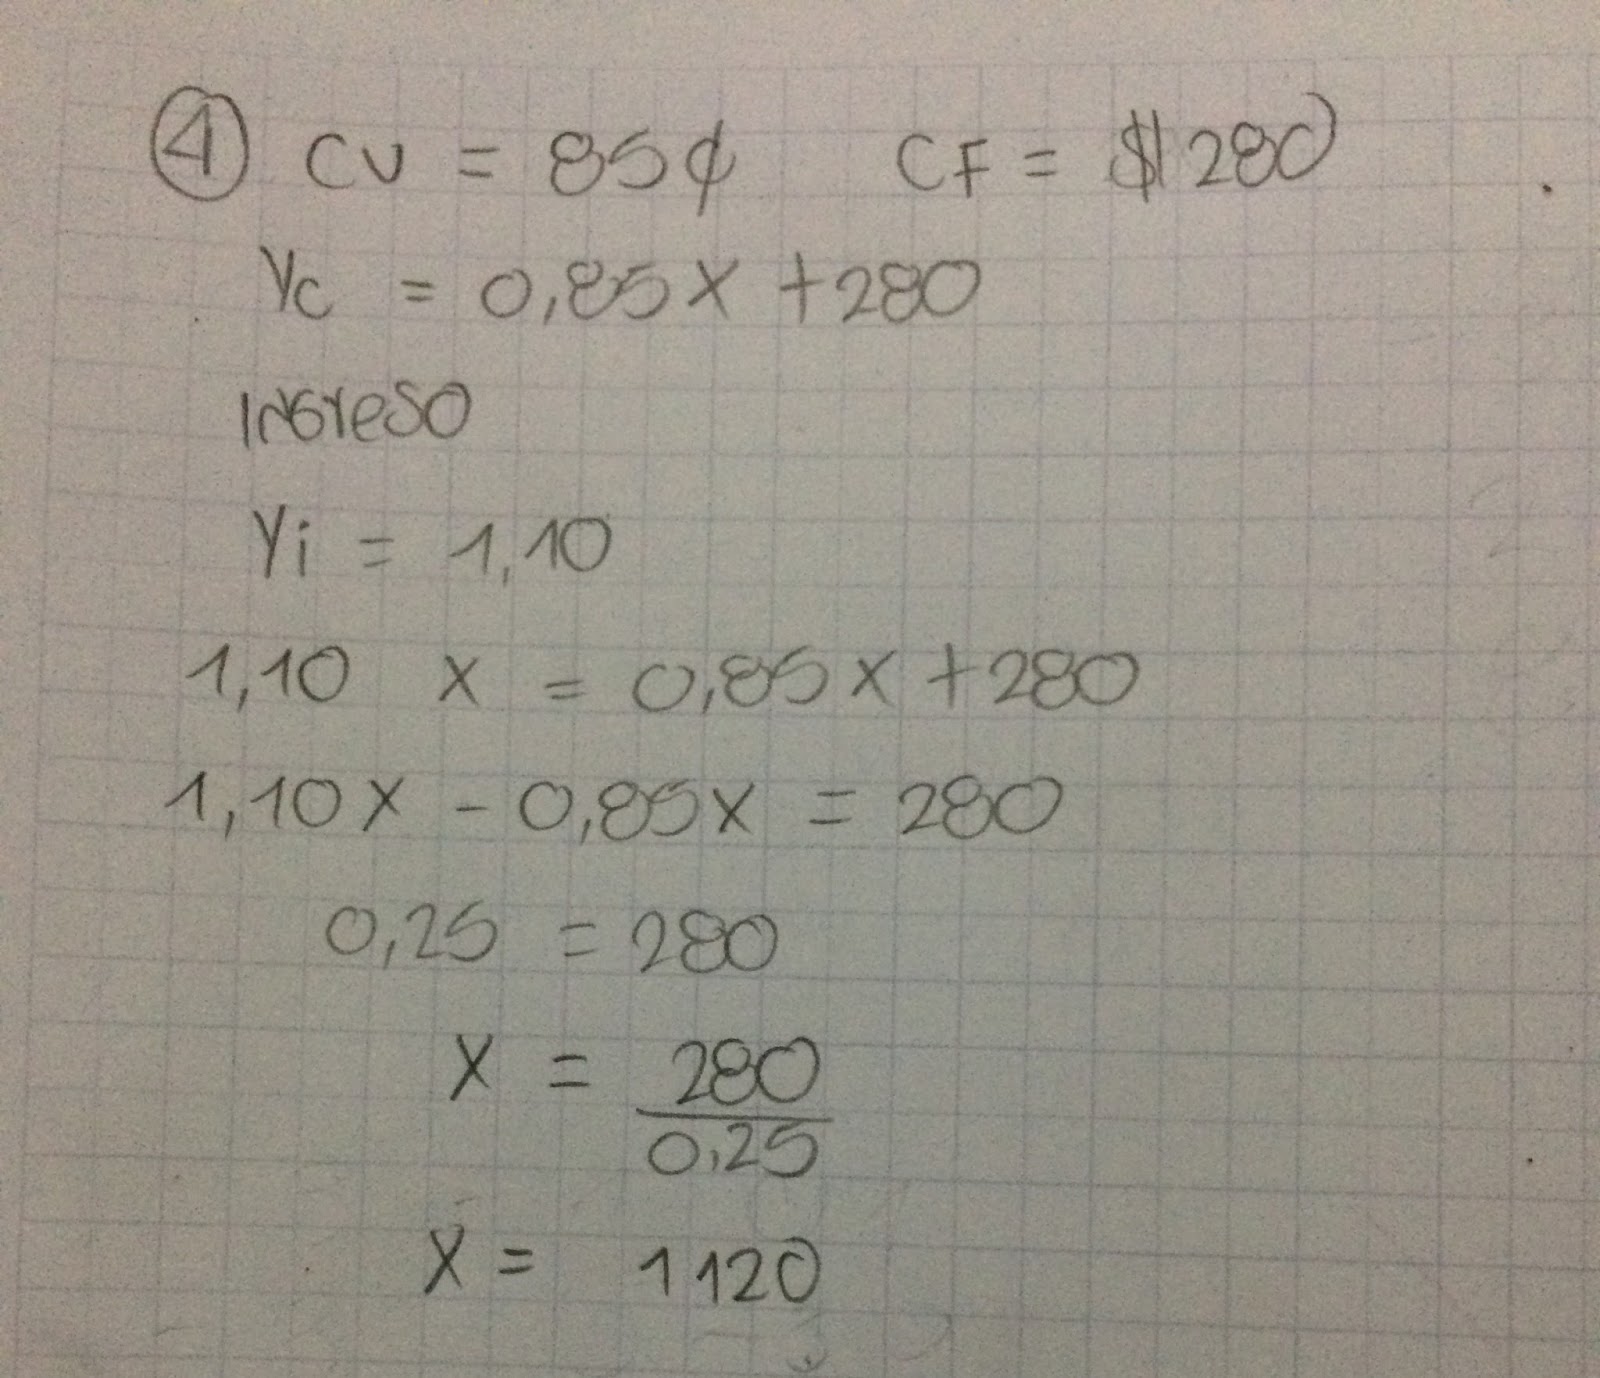 ④ CV = 85¢ CF = $280
Yc = 0,85x + 280
Ingreso
Yi = 1,10
1,10 x = 0,85x + 280
1,10x - 0,85x = 280
0,25 = 280
x = 280
0,25
x = 1120